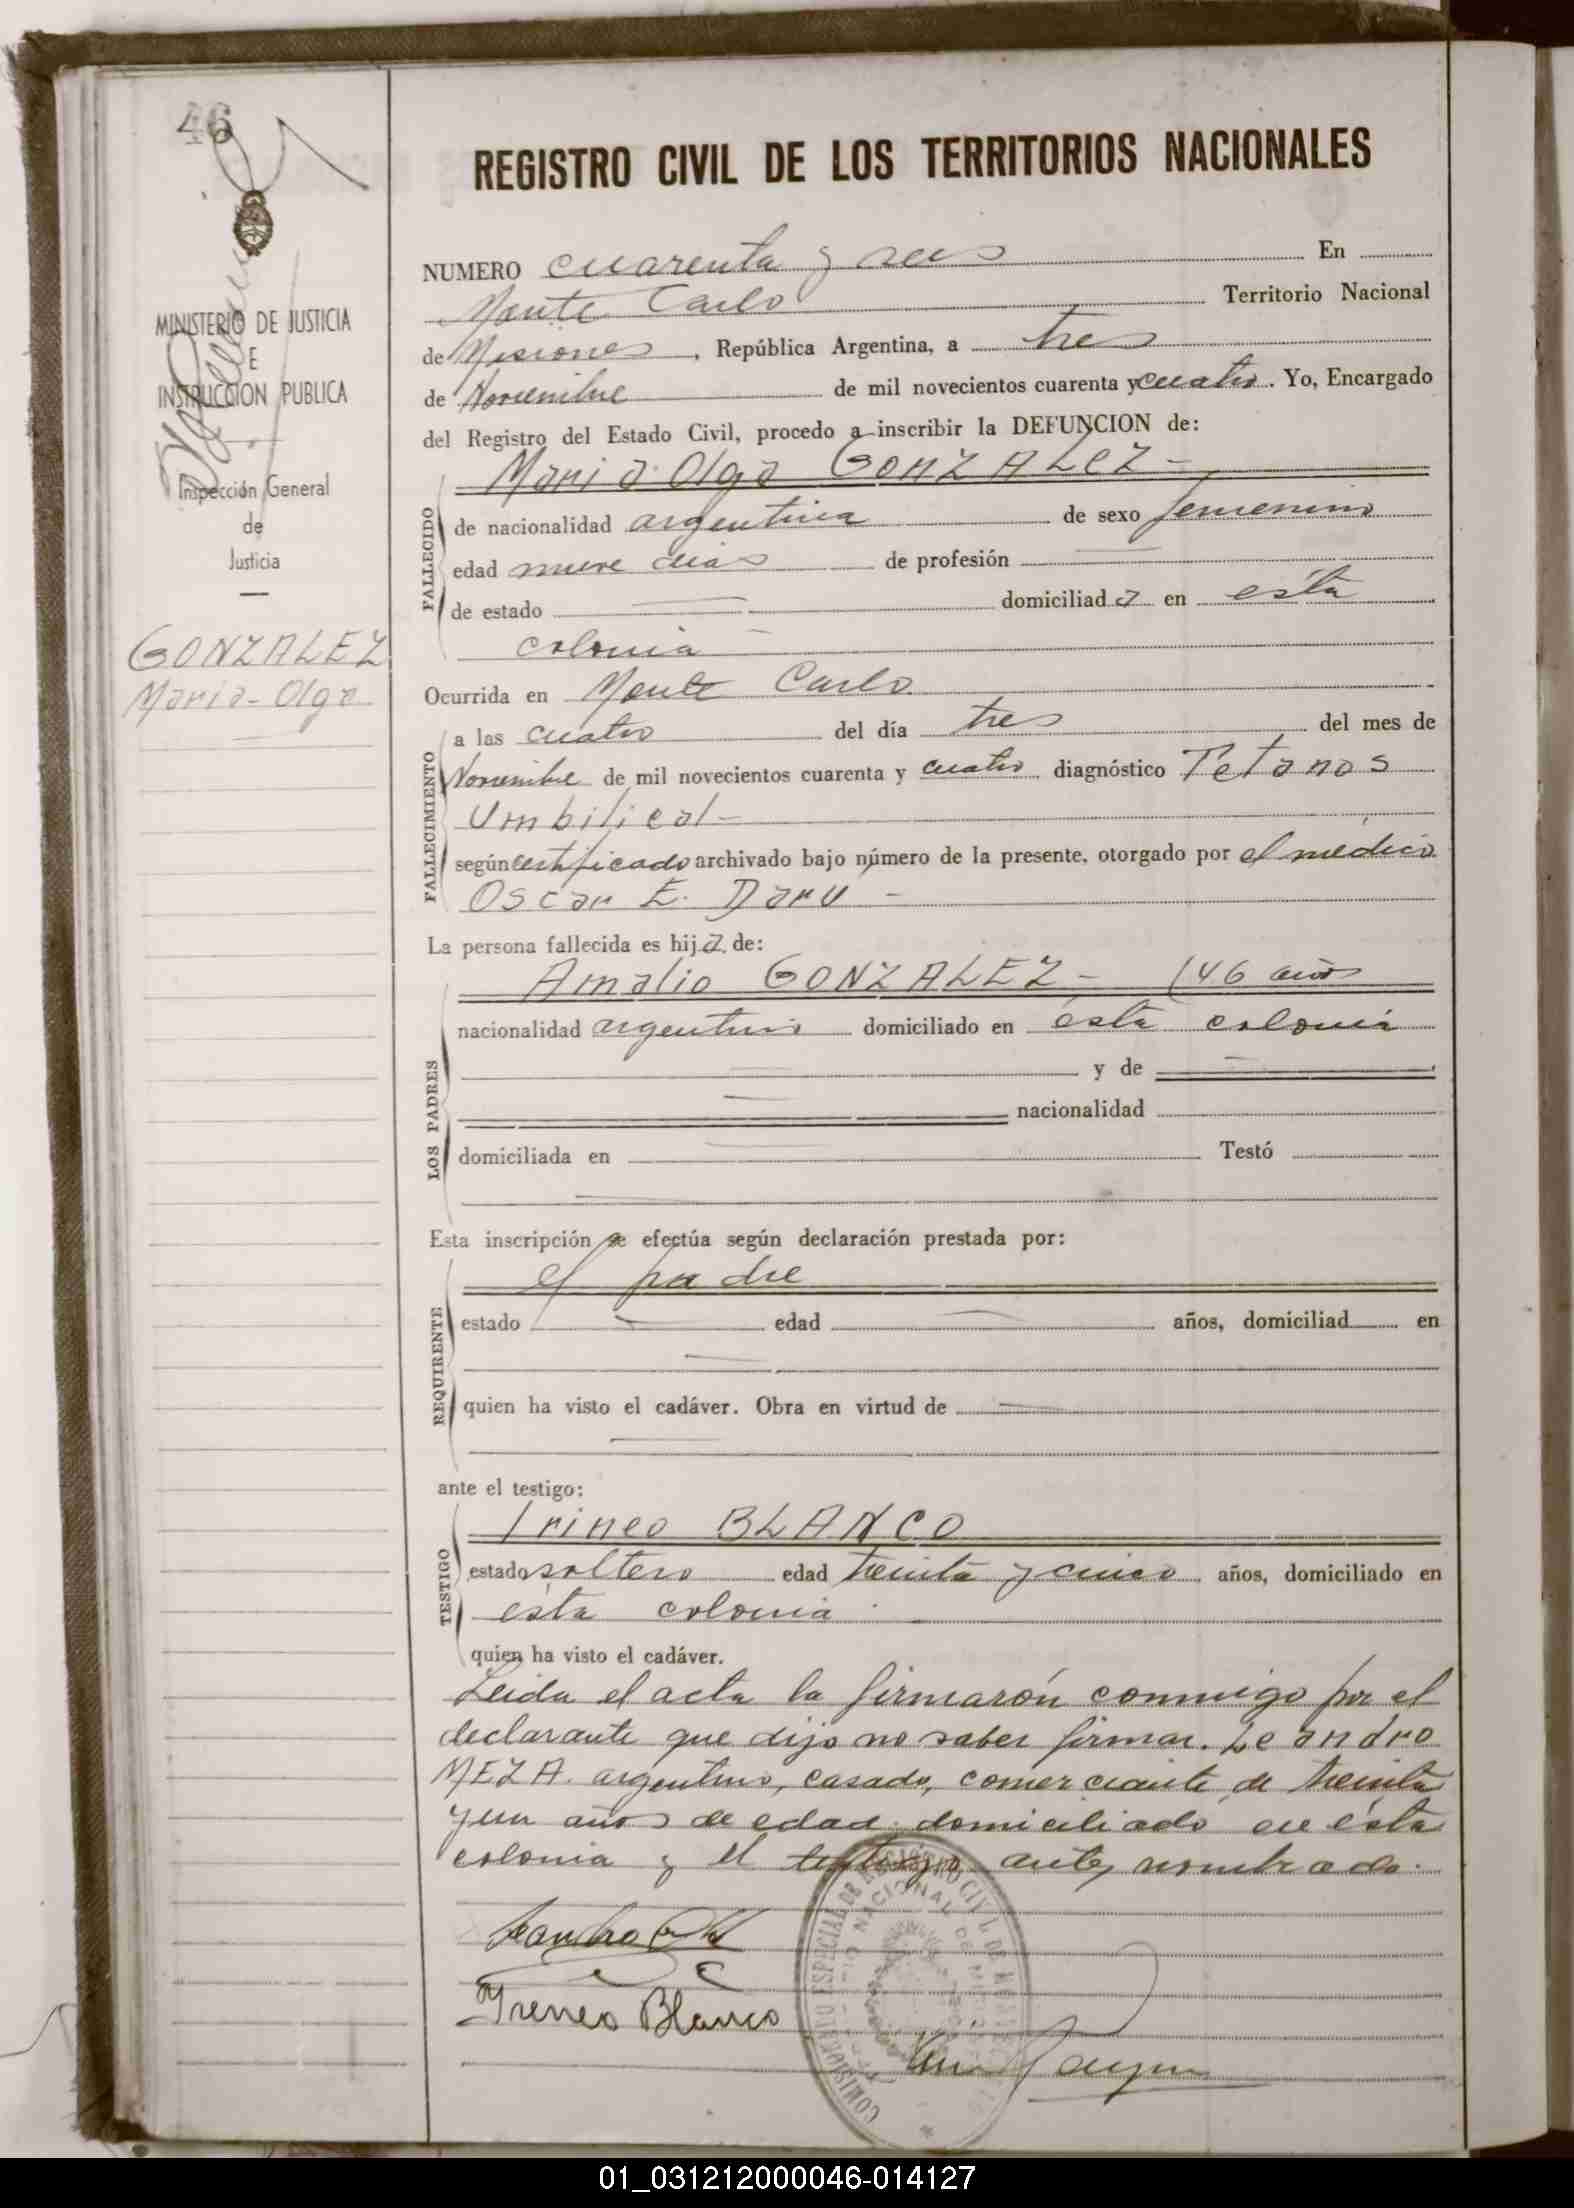 46
MINISTERIO DE JUSTICIA
E
INSTRUCCION PUBLICA
Inspección General
de
Justicia
GONZALEZ
Maria-Olga
REGISTRO CIVIL DE LOS TERRITORIOS NACIONALES
NUMERO cuarenta y seis En
Monte Carlo Territorio Nacional
de Misiones, República Argentina, a tres
de Noviembre de mil novecientos cuarenta y cuatro. Yo, Encargado
del Registro del Estado Civil, procedo a inscribir la DEFUNCION de:
FALLECIDO
Maria Olga GONZALEZ-
de nacionalidad argentina de sexo femenino
edad nueve dias de profesión
de estado domiciliada en ésta
colonia
Ocurrida en Monte Carlo
FALLECIMIENTO
a las cuatro del día tres del mes de
Noviembre de mil novecientos cuarenta y cuatro diagnóstico Tetanos
Umbilical-
según certificado archivado bajo número de la presente, otorgado por el médico
Oscar E. Daru -
La persona fallecida es hija de:
LOS PADRES
Amalio GONZALEZ- (46 años
nacionalidad argentino domiciliado en ésta colonia
y de
nacionalidad
domiciliada en Testó
Esta inscripción se efectúa según declaración prestada por:
REQUIRENTE
el padre
estado edad años, domiciliad en
quien ha visto el cadáver. Obra en virtud de
ante el testigo:
TESTIGO
Irineo BLANCO
estado soltero edad treinta y cinco años, domiciliado en
ésta colonia
quien ha visto el cadáver.
Leida el acta la firmarón conmigo por el
declarante que dijo no saber firmar. Leandro
MEZA. argentino, casado, comerciante, de treinta
y un años de edad domiciliado en ésta
colonia y el testigo antes nombrado.
Ireneo Blanco
01_031212000046-014127